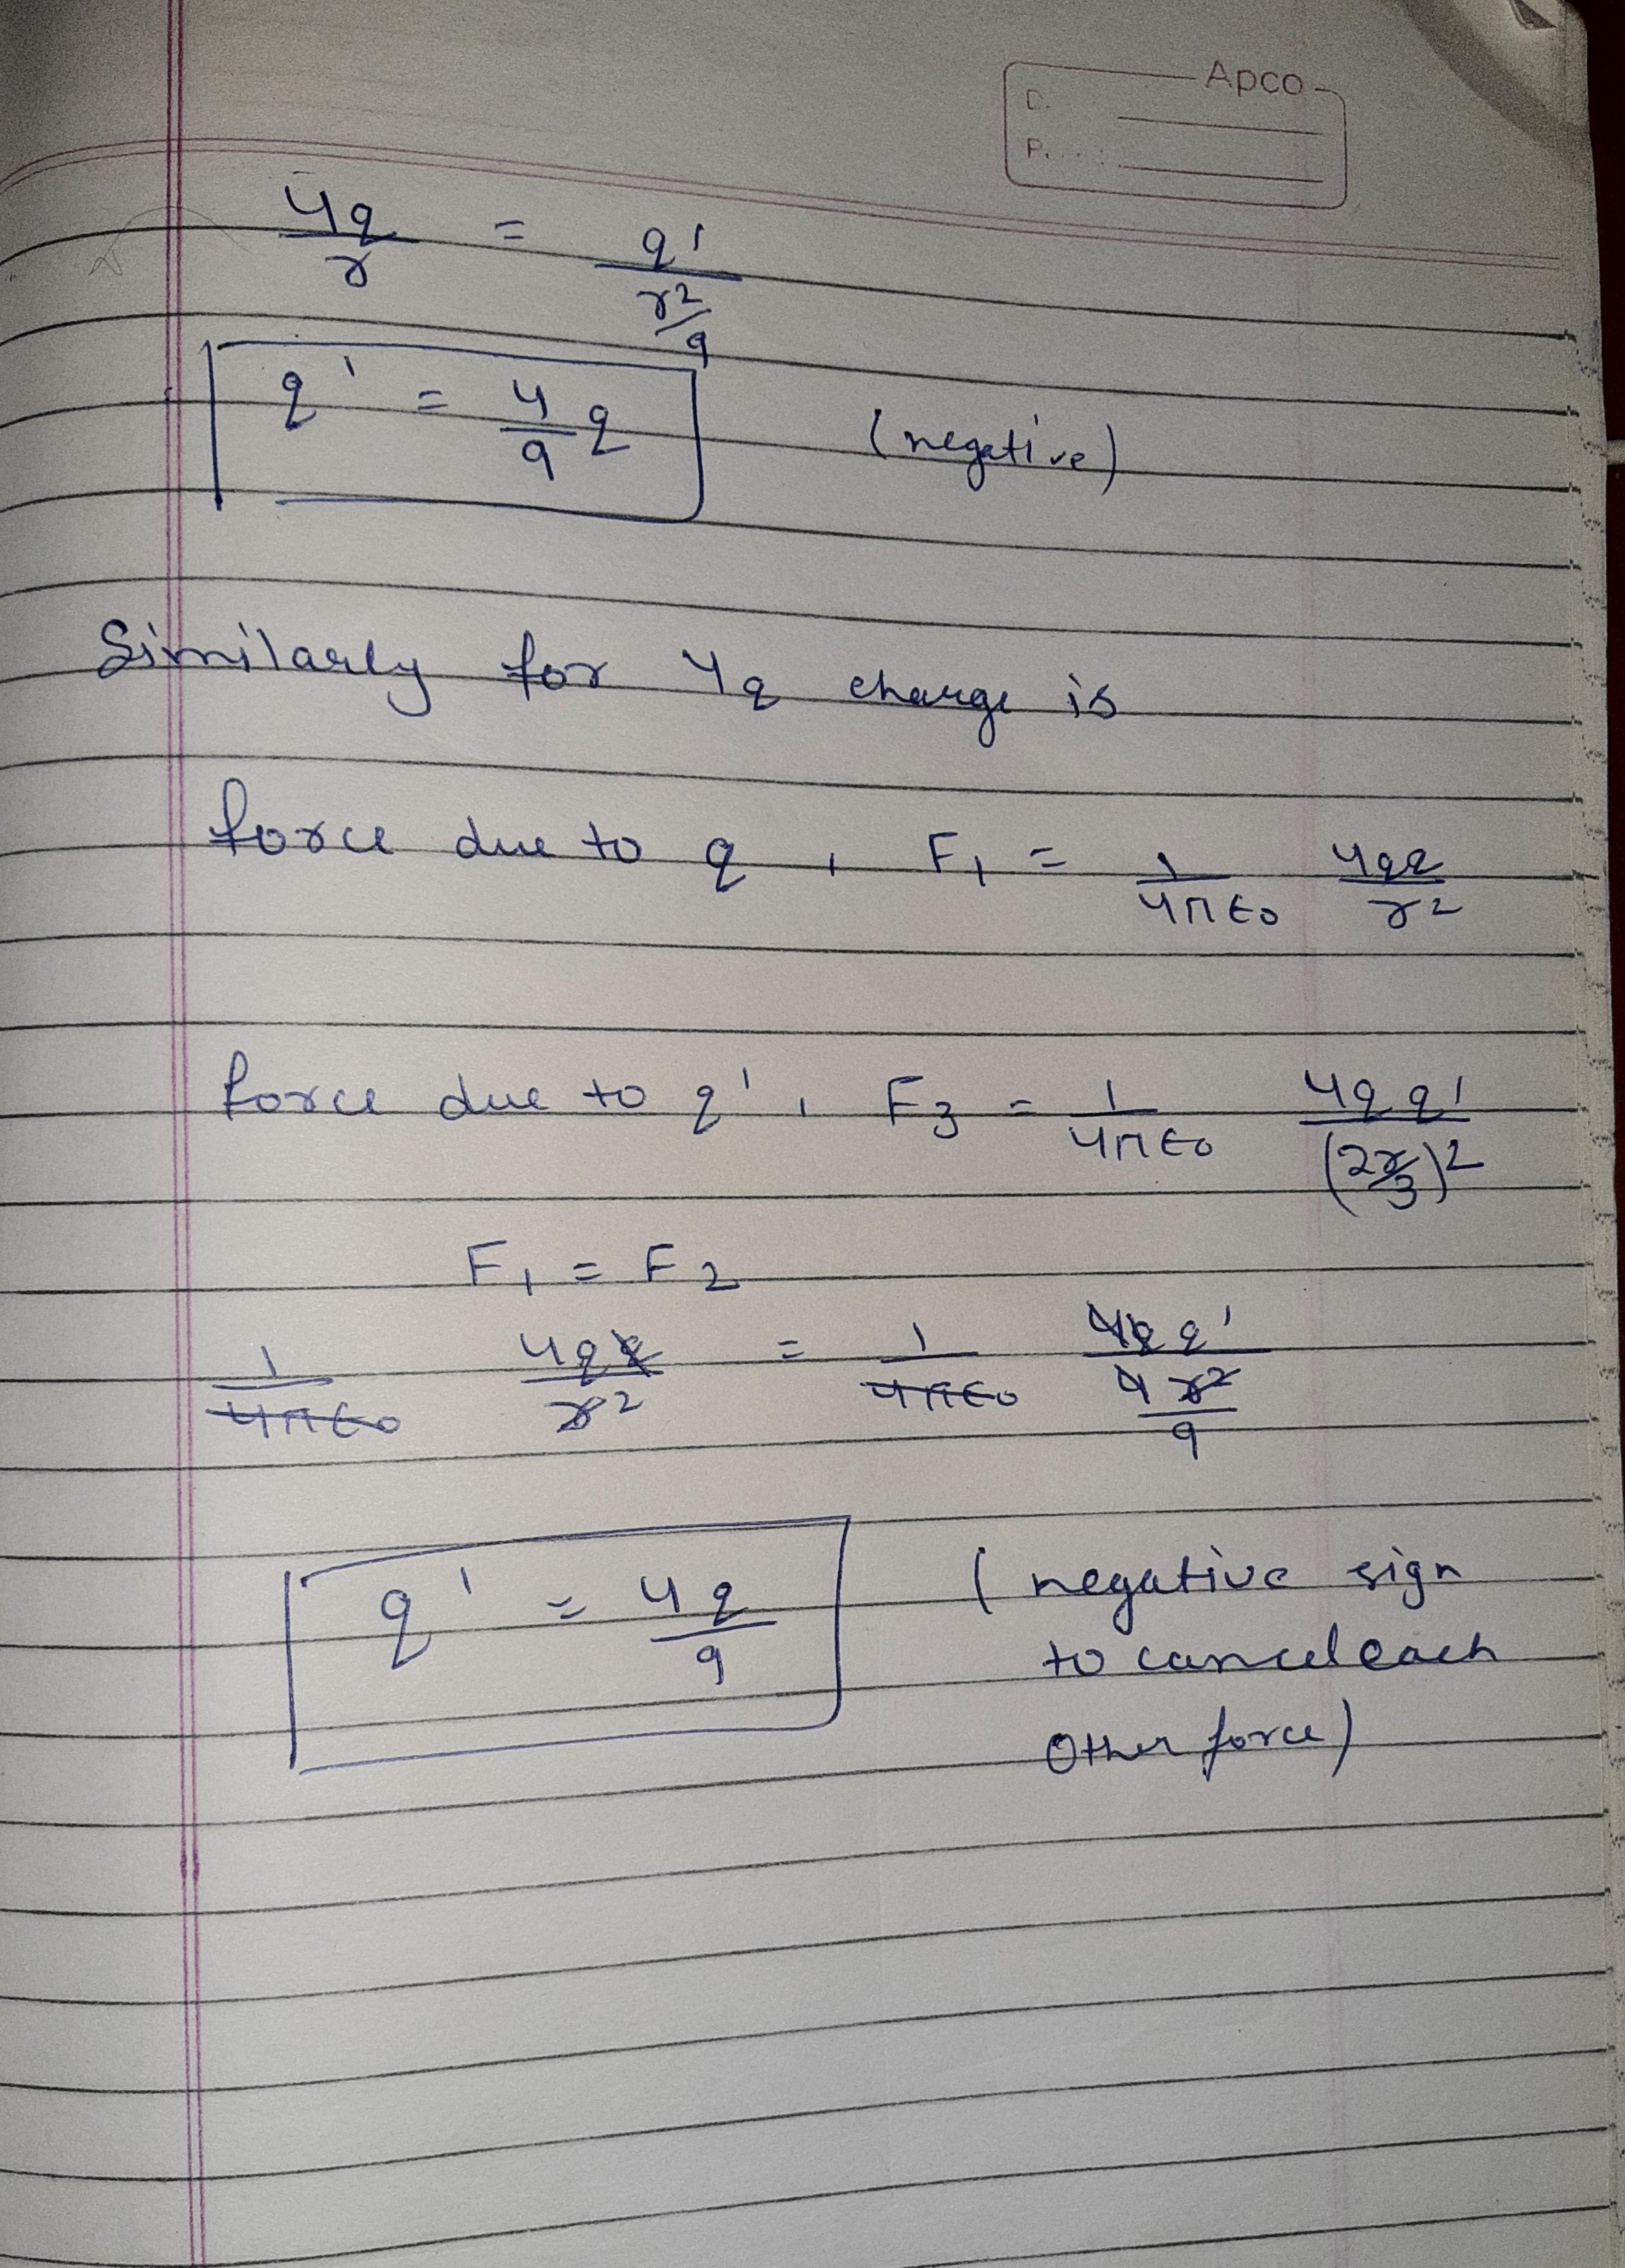 Apco
D.
P.
4q/r = q'/(r²/9)
q' = 4/9 q (negative)
Similarly for 4q charge is
force due to q, F₁ = 1/4πε₀ 4qq/r²
force due to q', F₃ = 1/4πε₀ 4qq'/(2r/3)²
F₁ = F₂
1/4πε₀ 4qq/r² = 1/4πε₀ 4qq'/(4r²/9)
q' = 4q/9 (negative sign
to cancel each
other force)